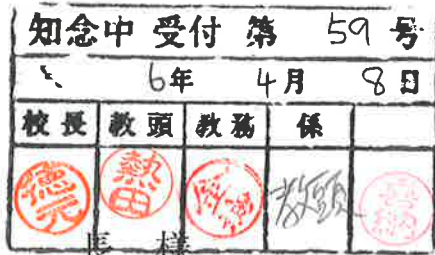 知念中 受付 第 59 号
6年 4月 8日
校長 教頭 教務 係
徳元 熱田 教頭
長 様